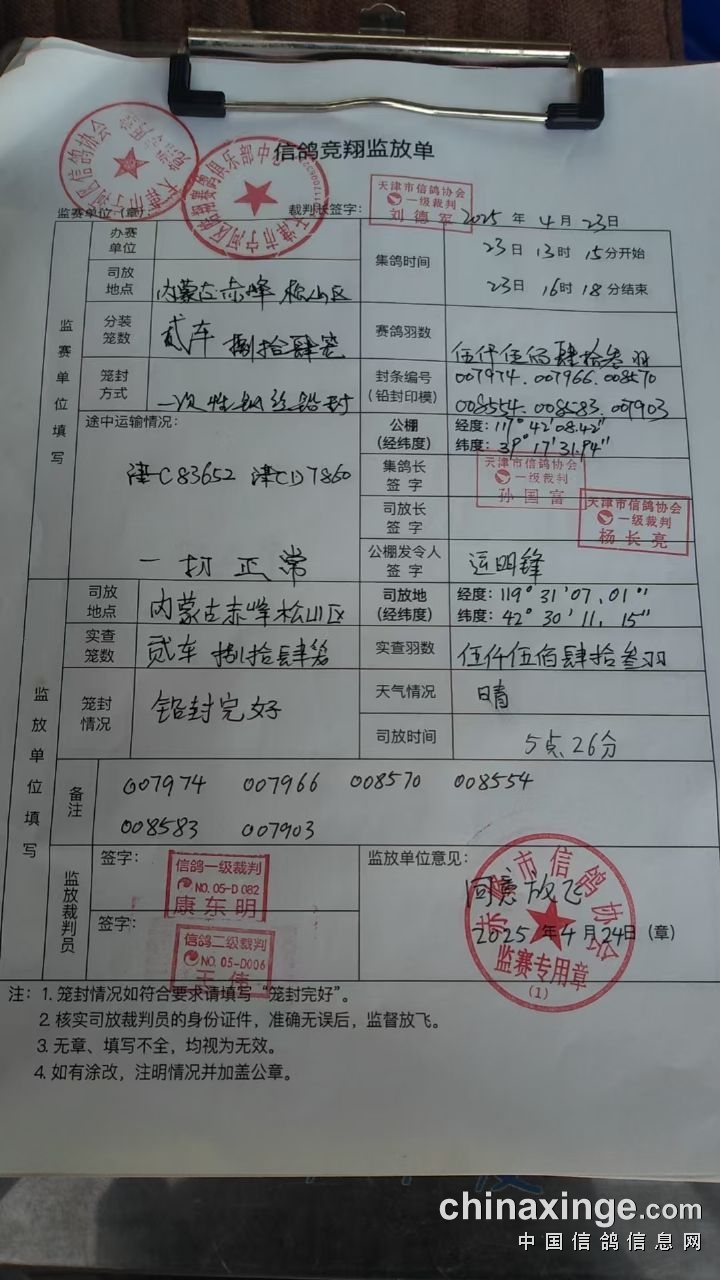 信鸽竞翔监放单
监赛单位（章）： 裁判长签字： 2025 年 4 月 23日
天津市信鸽协会
一级裁判
刘德军
监赛单位填写
办赛单位
集鸽时间 23日 13时 15分开始
23日 16时 18分结束
司放地点 内蒙古赤峰松山区
分装笼数 贰车 捌拾肆笼
赛鸽羽数 伍仟伍佰肆拾叁羽
笼封方式 一次性钢丝铅封
封条编号（铅封印模） 007974.007966.008570
008554.008583.007903
途中运输情况：
津C83652 津CD7860
一切正常
公棚（经纬度） 经度：117°42'08.42"
纬度：39°17'31.94"
集鸽长签字
天津市信鸽协会
一级裁判
孙国富
司放长签字
天津市信鸽协会
一级裁判
杨长亮
公棚发令人签字 运明锋
监放单位填写
司放地点 内蒙古赤峰松山区
司放地（经纬度） 经度：119°31'07.01"
纬度：42°30'11.15"
实查笼数 贰车 捌拾肆笼
实查羽数 伍仟伍佰肆拾叁羽
笼封情况 铅封完好
天气情况 晴
司放时间 5点26分
备注 007974 007966 008570 008554
008583 007903
监放裁判员
签字：
信鸽一级裁判
NO.05-D082
康东明
签字：
信鸽二级裁判
NO.05-D006
王伟
监放单位意见：
同意放飞
2025年4月24日（章）
赤峰市信鸽协会
监赛专用章
（1）
注：1. 笼封情况如符合要求请填写“笼封完好”。
2. 核实司放裁判员的身份证件，准确无误后，监督放飞。
3. 无章、填写不全，均视为无效。
4. 如有涂改，注明情况并加盖公章。
chinaxinge.com
中国信鸽信息网